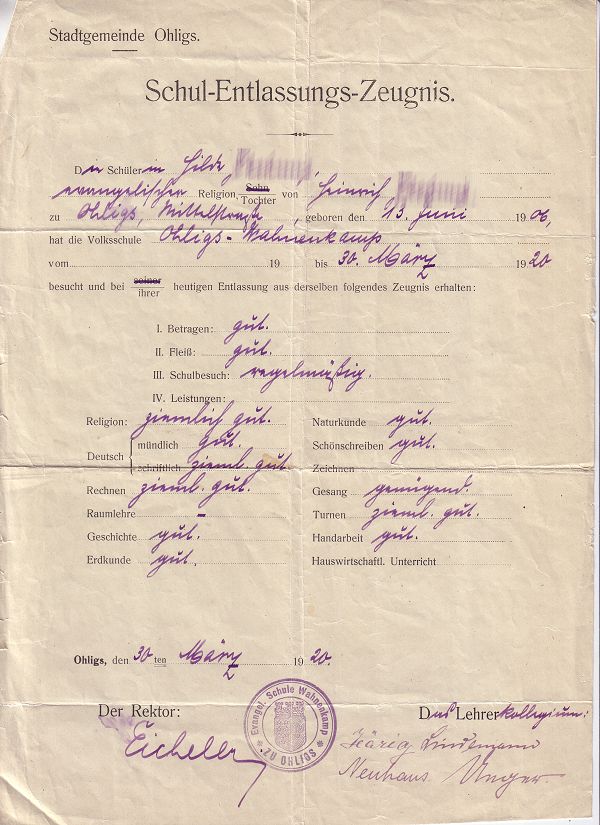 Stadtgemeinde Ohligs.
Schul-Entlassungs-Zeugnis.
Der Schülerin Hilde
evangelischer Religion, Sohn Tochter von Heinrich
zu Ohligs, Mittelstraße, geboren den 13. Juni 1906,
hat die Volksschule Ohligs-Wahnenkamp
vom 19 bis 30. März 1920
besucht und bei seiner ihrer heutigen Entlassung aus derselben folgendes Zeugnis erhalten:
I. Betragen: gut.
II. Fleiß: gut.
III. Schulbesuch: regelmäßig.
IV. Leistungen:
Religion: ziemlich gut. Naturkunde gut.
Deutsch mündlich gut. Schönschreiben gut.
schriftlich zieml. gut Zeichnen
Rechnen zieml. gut. Gesang genügend
Raumlehre – Turnen zieml. gut.
Geschichte gut. Handarbeit gut.
Erdkunde gut. Hauswirtschaftl. Unterricht
Ohligs, den 30ten März 1920.
Der Rektor: Das Lehrerkollegium:
Evangel. Schule Wahnenkamp
ZU OHLIGS
Lindemann
Neuhaus Unger